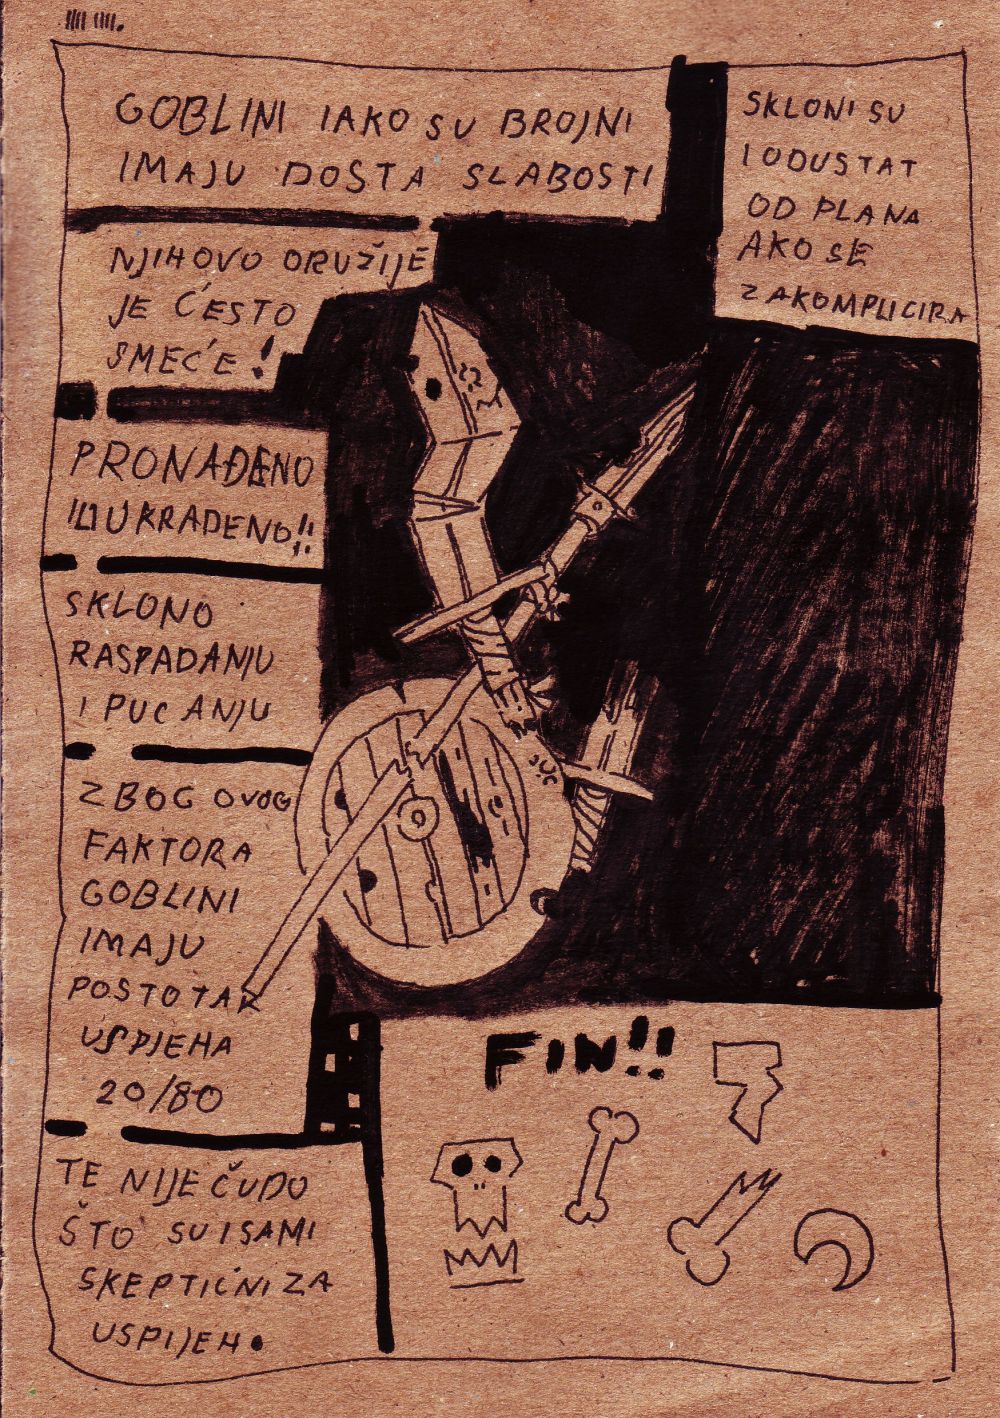 GOBLINI IAKO SU BROJNI
IMAJU DOSTA SLABOSTI
NJIHOVO ORUŽIJE
JE ĆESTO
SMEĆE!
PRONAĐENO
ILI UKRADENO!!
SKLONO
RASPADANJU
I PUCANJU
ZBOG OVOG
FAKTORA
GOBLINI
IMAJU
POSTOTAK
USPJEHA
20/80
TE NIJE ČUDO
ŠTO SU I SAMI
SKEPTIČNI ZA
USPIJEH.
SKLONI SU
I ODUSTAT
OD PLANA
AKO SE
ZAKOMPLICIRA
FIN!!